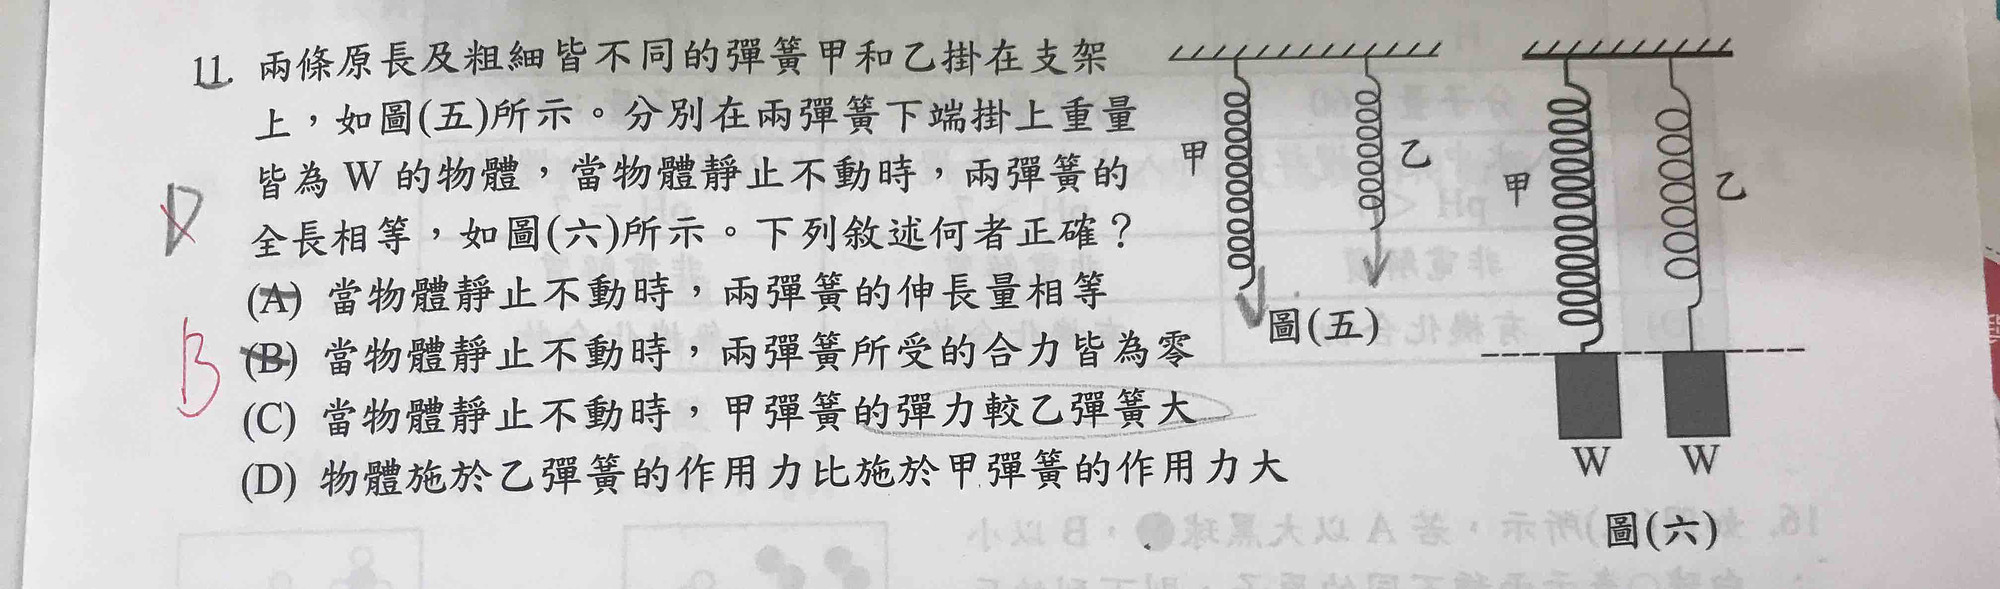 11. 兩條原長及粗細皆不同的彈簧甲和乙掛在支架
上，如圖(五)所示。分別在兩彈簧下端掛上重量
皆為 W 的物體，當物體靜止不動時，兩彈簧的
全長相等，如圖(六)所示。下列敘述何者正確？
(A) 當物體靜止不動時，兩彈簧的伸長量相等
(B) 當物體靜止不動時，兩彈簧所受的合力皆為零
(C) 當物體靜止不動時，甲彈簧的彈力較乙彈簧大
(D) 物體施於乙彈簧的作用力比施於甲彈簧的作用力大
D
B
甲
乙
圖(五)
甲
乙
W
W
圖(六)